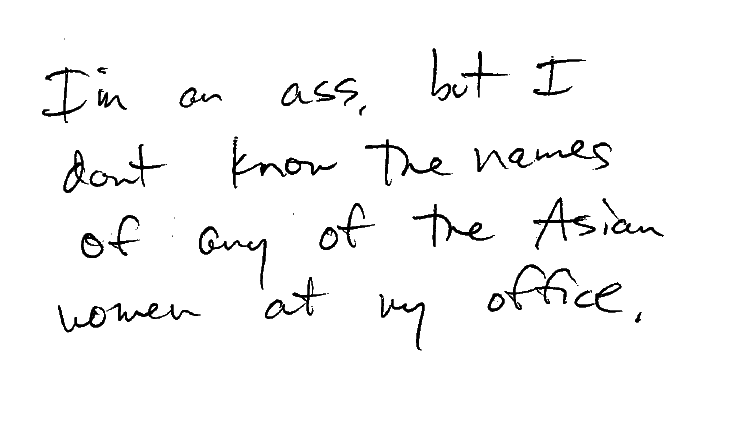 I'm an ass, but I
dont know the names
of any of the Asian
women at my office.